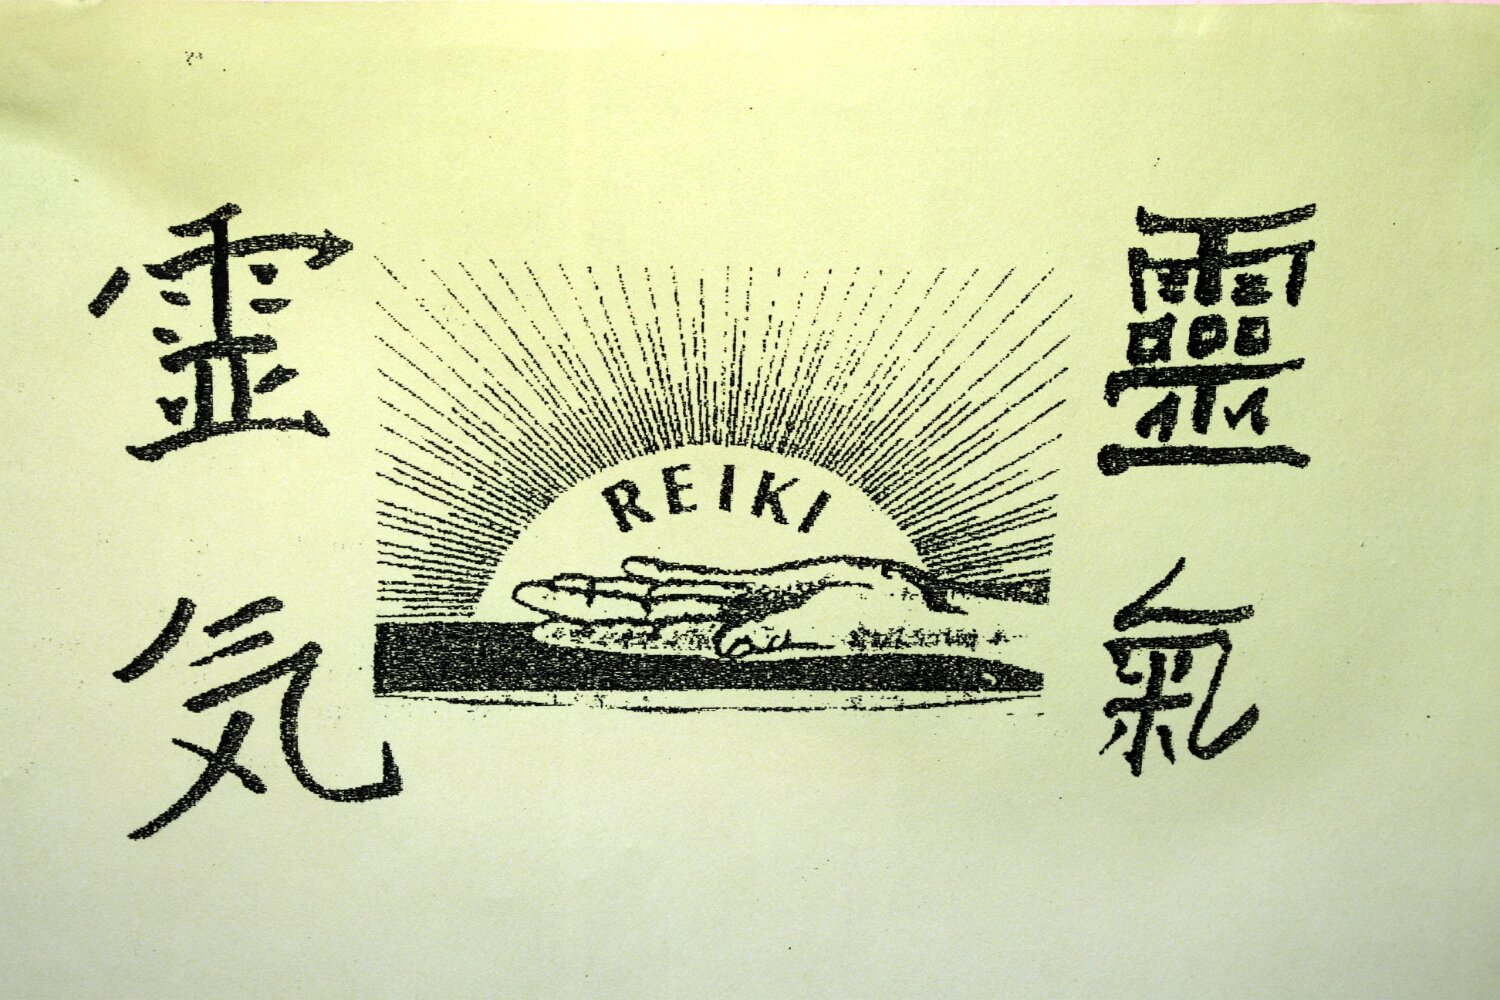 霊気
REIKI
靈氣